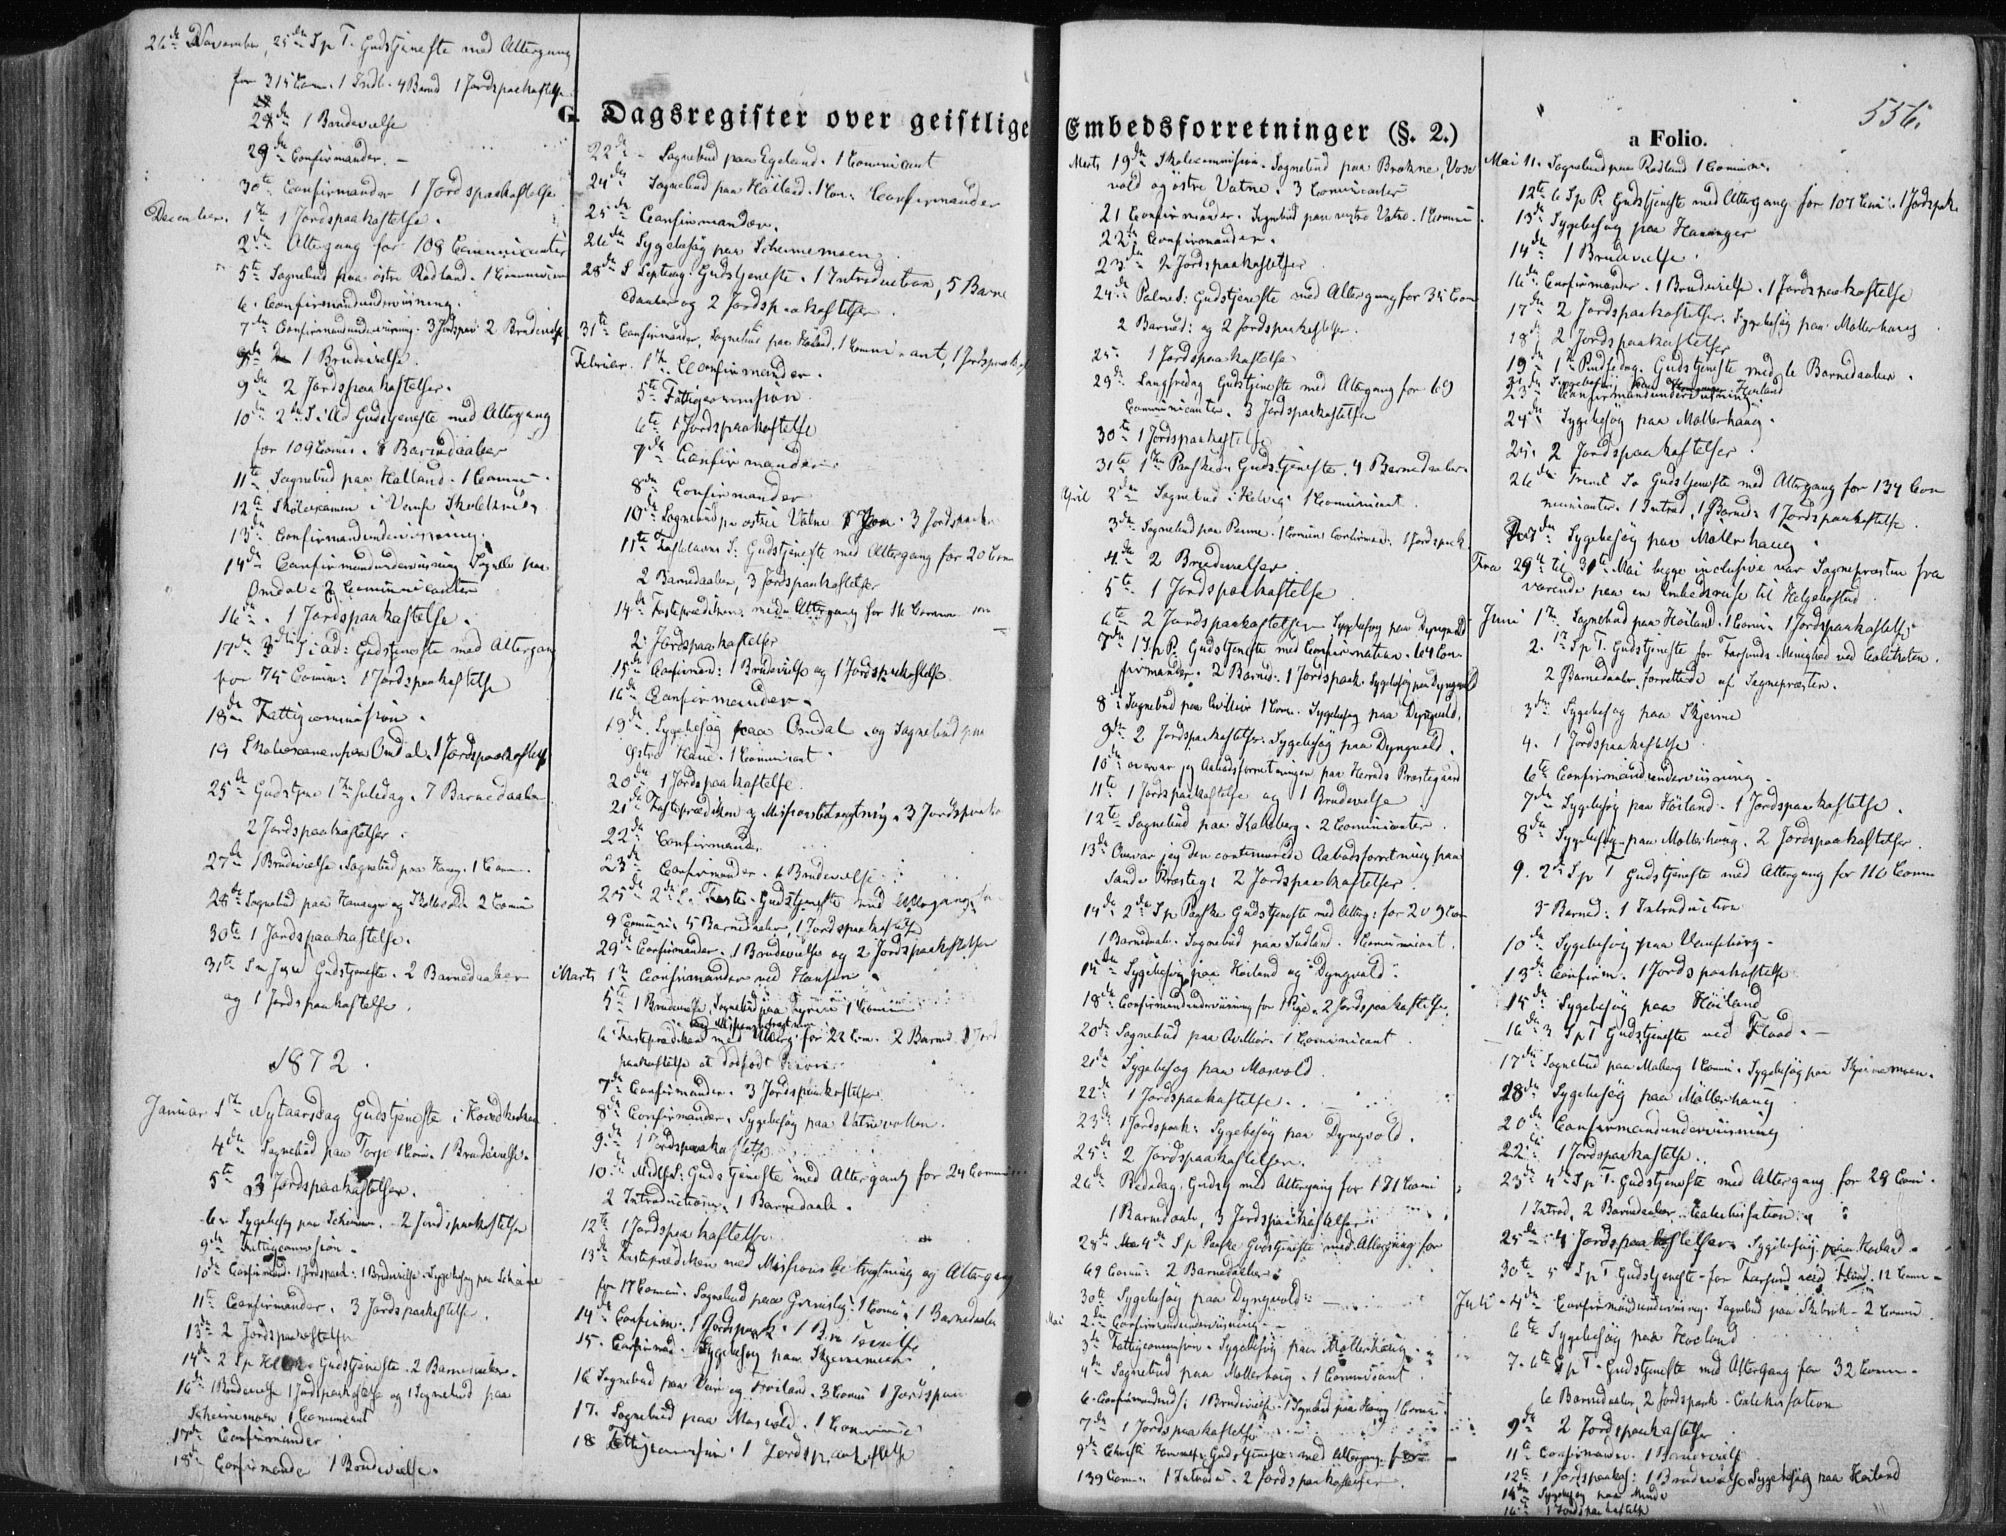 G. Dagsregister over geistlige Embedsforretninger (§. 2.)
a Folio.
556.
26de November, 25de S p T. Gudstjeneste med Altergang
for 315 Comm. 1 Indl. 4 Barnd 1 Jordspaakastelse
28de 1 Brudevielse
29de Confirmander.
30te Confirmander 1 Jordspaakastelse
December. 1ste 1 Jordspaakastelse.
2den Altergang for 108 Communicanter
5te Sognebud paa østre Rødland. 1 Communicant
6. Confirmandunderviisning.
7de Confirmandunderviisning. 3 Jordspaa 2 Brudevielse
1 Brudevielse.
9de 2 Jordspaakastelser.
10de 2den S. i Ad Gudstjeneste med Altergang
for 109 Comm. 8 Barnedaaber
11te Sognebud paa Hølland. 1 Commun.
12te Skoleexamen i Vanse Skolekreds
13de Confirmandunderviisning.
14de Confirmandunderviisning Sognebud paa
Omdal 2 Communicanter
16de 1 Jordspaakastelse.
17de 3die S i ad: Gudstjeneste med Altergang
for 75 Comm: 1 Jordspaakastelse
18de Fattigcommission.
19 Skoleexamen paa Omdal. 1 Jordspaakastelse
25de Gudstjene 1ste Juledag. 7 Barnedaaber
2 Jordspaakastelser.
27de 1 Brudevielse. Sognebud paa Haug. 1 Comm.
28de Sognebud paa Hananger og 2 Comm
30te 1 Jordspaakastelse.
31te S n Juel Gudstjeneste. 2 Barnedaaber
og 1 Jordspaakastelse.
1872.
Januar 1ste Nytaarsdag Gudstjeneste i Hovedkirken
4de Sognebud paa Torp 1 Com. 1 Brudevielse.
5te 3 Jordspaakastelser.
6te Sygebesøg paa Scheime. 2 Jordspaakastelser
9de Fattigcommission.
10de Confirmand. 1 Jordspaak: 1 Brudevielse. Sygebesøg paa Scheime
11te Confirmander. 3 Jordspaakastelse.
13de 2 Jordspaakastelser
14de 2 S p H 3 K Gudstjeneste. 2 Barnedaaber.
16de 1 Brudevielse 1 Jordspaakastelse og 1 Sognebud paa
Scheimemoen 1 Communicant
17de Confirmander
18de Confirmander 1 Brudevielse.
22de Sognebud paa Egeland. 1 Communicant
24de Sognebud paa Høiland. 1 Com: Confirmander
25de Confirmander.
26de Sygebesøg paa Scheimemoen
28de S Septuag. Gudstjeneste. 1 Introduction, 5 Barne
daaber og 2 Jordspaakastelser.
31te Confirmander, Sognebud paa Høiland, 1 Communicant, 1 Jordspaak
Februar. 1ste Confirmander.
5te Fattigcommission
6te 1 Jordspaakastelse
7de Confirmander
8de Confirmander
10de Sognebud pa østre Vatne 1 Com. 3 Jordspaaka
11te Fastelavns S: Gudstjeneste med Altergang for 20 Com
2 Barnedaaber, 3 Jordspaakastelser
14de Fasteprædiken med Altergang for 16 Comm
2 Jordspaakastelser
15de Confirmand: 1 Brudevielse og 1 Jordspaakastelse.
16de Confirmander.
19de Sygebesøg paa Omdal og Sognebud paa
østre Haue. 1 Communicant.
20de 1 Jordspaakastelse
21de Fasteprædiken og Missionsbetragtning. 3 Jordspaaka
22de Confirmand.
23de Confirmander. 6 Brudevielse
25de 2den S. i Faste Gudstjeneste med Altergang for
9 Commun: 5 Barnedaaber, 1 Jordspaakastelse
29de Confirmander. 1 Brudevielse og 2 Jordspaakastelser
Marts 1ste Confirmander ved Hansen.
5te 1 Brudevielse, Sognebud paa 1 Commun
og Missionsbetragtn
6te Fasteprædiken med Alterg: for 22 Com. 2 Barned. 1 Jord
paakastelse et dødfødt Barn
7de Confirmander. 3 Jordspaakastelser
8de Confirmander. Sygebesøg paa Vatnevollen.
9de 1 Jordspaakastelse
10de Midf. S: Gudstjeneste med Altergang for 24 Commun
2 Introductioner. 1 Barnedaab.
12te 1 Jordspaakastelse.
13de Fasteprædiken med Missionsbetragtning og Altergang
for 17 Comm: Sognebud paa Grimsby: 1 Com: 1 Barnedaab
14de Confirm: 1 Jordspaak. 1 Brudevielse
15. Confirmand. Sygebesøg paa Skjeimemoen
16 Sognebud paa og Høiland. 3 Comm 1 Jordspaa
17. Sognebud paa Mosvold. 1 Communic
18 Fattigcommission. 1 Jordspaakastelse
Marts 19de Skolecommission. Sognebud paa Brekne, Vose
vold og østre Vatne. 3 Communicanter
21 Confirmander. Sognebud paa vestre Vatne. 1 Commun
22de Confirmander.
23de 2 Jordspaakastelser
24de Palmes: Gudstjeneste med Altergang for 35 Com
2 Barned: og 2 Jordspaakastelser.
25. 1 Jordspaakastelse
29de Langfredag Gudstjeneste med Altergang for 69
Communicanter. 3 Jordspaakastelse
30te 1 Jordspaakastelse
31te 1ste Paaskedag Gudstjeneste. 4 Barnedaaber.
April 2den Sognebud i Helvig 1 Communicant.
3de Sognebud paa Penne. 1 Commun Confirmand: 1 Jordspaak
4de 2 Brudevielser
5te 1 Jordspaakastelse
6te 2 Jordspaakastelser Sygebesøg paa Dyngvold
7de 1 S p P. Gudstjeneste med Confirmation. 64 Con
firmander. 2 Barned: 1 Jordspaak. Sygebesøg paa Dyngvold
8de Sognebud paa Qvillior 1 Com. Sygebesøg paa Dyngvold.
9de 2 Jordspaakastelse. Sygebesøg paa Dyngvold.
10de overvar jeg Aabodsforretningen paa Herreds Præstegaard
11te 1 Jordspaakastelse og 1 Brudevielse
12te Sognebud paa Kalleberg. 2 Communicanter
13de Overvar jeg den continuerede Aabodsforretning paa
Sande Præsteg: 2 Jordspaakastelser.
14de 2de S p Paaske Gudstjeneste med Alterg: for 209 Com
1 Barnedaab. Sognebud paa Judland. 1 Communicant.
15de Sygebesøg paa Høiland og Dyngvold.
18de Confirmandunderviisning for 1 Pige. 2 Jordspaakastelse.
20de Sognebud paa Qvillior. 1 Communicant
21de Sygebesøg paa Mosvold
22de 1 Jordspaakastelse.
23de 1 Jordspaak: Sygebesøg paa Dyngvold.
25de 2 Jordspaakastelser.
26de Bededag. Gudstj med Altergang for 171 Comi
1 Barnedaab, 3 Jordspaakastelser
28de 4de S p Paaske Gudstjeneste med Altergang for
69 Comm: 2 Barnedaaber.
30te Sygebesøg paa Dyngvold:
Mai 2den Confirmandunderviisning.
3de Fattigcommission. Sygebesøg paa Møllerhaug.
4de Sognebud paa Møllerhaug. 1 Communicant.
6. Confirmandund: 1 Brudevielse. 1 Sognebud paa Haug 1 Commun:
7de 1 Jordspaakastelse
9de Christi Himmelf: Gudstjeneste med Altergang. for
139 Comm: 1 Introdu. 2 Jordspaakastelser.
Mai 11. Sognebud paa Rødland 1 Commun.
12te 6 S p P. Gudstjeneste med Altergang for 107 Com: 1 Jordspak.
13de Sygebesøg paa Hananger
14de 1 Brudevielse.
16de Confirmander. 1 Brudevielse. 1 Jordspaakastelse
17de 2 Jordspaakastelser. Sygebesøg paa Møllerhaug
18de 2 Jordspaakastelser
19de 1ste Pindsedag. Gudstjeneste med 6 Barnedaaber.
21de Sygebesøg paa Høiland
23de Confirmandunderviisning
24de Sygebesøg paa Møllerhaug.
25. 2 Jordspaakastelser.
26de Trinit So Gudstjeneste med Altergang for 134 Com
municanter. 1 Introd, 1 Barned: 1 Jordspaakastelse.
Sygebesøg paa Møllerhaug.
Fra 29de til 31te Mai begge inclusive var Sognepræsten fra
værende paa en Embedsreise til Helgebostad
Juni 1ste Sognebud paa Høiland. 1 Comm. 1 Jordspaakastelse
2. 1ste S p T. Gudstjeneste for Farsunds Menighed ved
2 Barnedaaber. Forrettede af Sognepræsten.
3de Sygebesøg paa Skjeime
4. 1 Jordspaakastelse.
6te Confirmandunderviisning.
7de Sygebesøg paa Høiland. 1 Jordspaakastelse.
8de Sygebesøg paa Møllerhaug. 2 Jordspaakastelser
9. 2de S p T Gudstjeneste med Altergang for 110 Comm
5 Barned: 1 Introduction
10de Sygebesøg paa Vanseborg.
13de Confirm. 1 Jordspaakastelse
15de Sygebesøg paa Høiland
16de 3 S p T Gudstjeneste ved Flaad.
17de Sognebud paa Maberg 1 Comm. Sygebesøg paa Skjeimemoen.
18de Sygebesøg paa Møllerhaug
20de Confirmandunderviisning
22de 1 Jordspaakastelse.
23de 4de S p T. Gudstjeneste med Altergang for 28 Com.
1 Introd, 2 Barnedaaber. Catechisation.
25de 4 Jordspaakastelser. Sygebesøg paa Høiland.
30te 5te S p T Gudstjeneste for Farsund ved 12 Comm
Juli 4de Confirmandunderviisning. Sognebud paa Skibvik. 2 Comm
6te Sygebesøg paa Høiland
7. 6te S p T. Gudstjeneste med Altergang for 32 Comm.
6 Barnedaaber, 2 Jordspaak. Catechisation
9de 2 Jordspaakastelse
11te Confirmander. 1 Brudevielse
12te 1 Jordspaakas: 1 Brudevielse Sygebesøg paa Høiland
Sygebesøg paa
16de 1 Jordspaakastelse